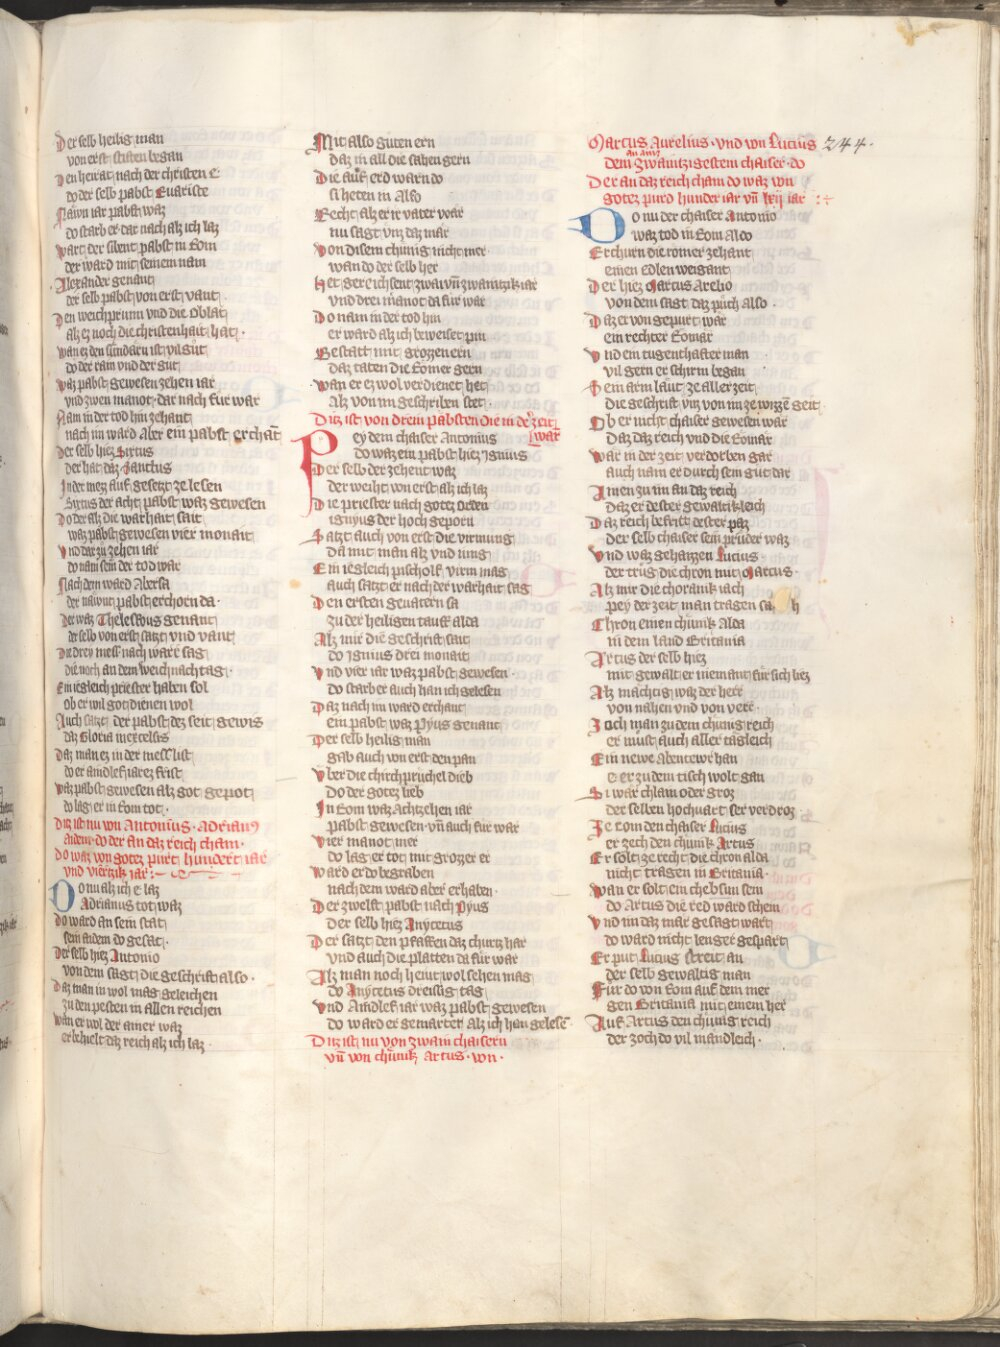 Der selb heilig man
von erst stiften began
Den heirat nach der christen e
do der selb pabst Evariste
Nawn iar pabst waz
do starb er dar nach als ich laz
Wart der sibent pabst in Rom
der ward mit seinem nam
Alexander genant
der selb pabst von erst vant
Den weichprunn vnd die Oblat
als ez noch die christenhait hat
Wan ez den sundarn ist vil gut
do der rain vnd der gut
Waz pabst gewesen zehen iar
vnd zwen manot dar nach fur war
Nam in der tod hin zehant
nach im ward Aber ein pabst erchant
Der selb hiez Sixtus
der hat daz Sanctus
In der mez auf gesetzt ze lesen
Sixtus der acht pabst waz gewesen
Do der als die warhait sait
waz pabst gewesen vier monait
Vnd dar zu zehen iar
do nam sein der tod war
Nach dem ward Abersa
der nawnt pabst erchorn da
Der waz Thelesfous genant
der selb von erst satzt vnd vant
Die drey mess nach ware sag
die noch an dem weichnacht tag
Ein iegleich priester haben sol
ob er wil got dienen wol
Auch satzt der pabst dez seit gewis
daz Gloria in excelsis
Daz man ez in der mess list
do er aindlef iarez frist
Waz pabst gewesen als got gepot
do lag er in Rom tot
Ditz ist nu von Antonius Adrianus
aidem do der an daz reich cham
Do waz von gotez purt hundert iar
vnd viertzik iar
Do nu als ich e laz
Adrianus tot waz
Do ward an sein stat
sein aidem do gesat
Der selb hiez Antonio
von dem sagt die geschrift also
Daz man in wol mag geleichen
zu den pesten in allen reichen
Wan er wol der ainer waz
er behielt daz reich als ich laz
Mit also guten ern
daz in all die sahen gern
Die auf erd warn do
si heten in Also
Recht als er ir vater war
nu sagt vns daz mar
Von disem chunig nicht mer
wan do der selb her
Het gereichsent zwai vnd zwaintzik iar
vnd drei manot da fur war
Do nam in der tod hin
er ward als ich beweiset pin
Bestatt mit grozzen ern
daz taten die Romer gern
Wan er ez wol verdienet het
Als von im geschriben stet
Ditz ist von drein pabsten die in der zeit
war
Pey dem chaiser Antonius
do waz ein pabst hiez Ignius
Der selb der zehent waz
der weiht von erst als ich laz
Die priester nach gotez orden
ignyus der hoch geporn
Satzt auch von erst die virmung
da mit man alt vnd iung
Ein iegleich pischolf virm mag
auch satzt er nach der warhait sag
Den ersten gevatern sa
zu der heiligen tauff alda
Als mir die geschrift sait
do Ignius drei monait
Vnd vier iar waz pabst gewesen
do starb er auch han ich gelesen
Daz nach im ward erchant
ein pabst waz Pyus genant
Der selb heilig man
gab auch von erst den pan
Vber die chirchpruchel dieb
do der gotez lieb
In Rom waz Achtzehen iar
pabst gewesen vnd auch fur war
Vier manot mer
do lag er tot mit grozzer er
Ward er do begraben
nach dem ward aber erhaben
Der zwelft pabst nach Pyus
der selb hiez Anycetus
Der satzt den pfaffen daz churtz har
vnd auch die platten da fur war
Als man noch heint wol sehen mag
do Anycetus dreissig tag
Vnd Aindlef iar waz pabst gewesen
do ward er gemartert Als ich hon gelesen
Ditz ist nu von zwain chaisern
vnd von chunik Artus von
Marcus Aurelius vnd von Lucius 244.
dem zwaintzigestem chaiser do
Der an daz reich cham do waz von
gotez purd hunder iar vnd lxij iar
Do nu der chaiser Antonio
waz tod in Rom Aldo
Erchurn die romer zehant
einen edlen weigant
Der hiez Marcus Arelio
von dem sagt daz puch also
Daz er von gepurt wär
ein rechter Romar
Vnd ein tugenthafter man
vil gern er schirm began
Sein arm laut ze aller zeit
die geschrift vns von im ze wizzen geit
Ob er nicht chaiser gewesen war
daz daz reich vnd die Romar
War in der zeit verdorben gar
auch nam er durch sein gut dar
Ainen zu im an daz reich
daz er dester gewaltikleich
Daz reich befritt dester paz
der selb chaiser sein pruder waz
Vnd waz gehaizzen Lucius
der trug die chron mit Marcus
Als mir die choranik iach
pey der zeit man tragen sach
Chron einen chunik Alda
in dem land Britania
Artus der selb hiez
mit gewalt er niemant fur sich liez
Als machtig waz der herr
von nahen vnd von verr
Zoch man zu dem chunig reich
er must auch aller tagleich
Ein newe Abentewr han
e er zu dem tisch wolt gan
Si war chlain oder groz
der selben hochvart ser verdroz
Ze Rom den chaiser Lucius
er zech den chunik Artus
Er solt ze recht die chron alda
nicht tragen in Britania
Wan er solt ein chebsun sein
do Artus die red ward schein
Vnd im daz mar gesagt wart
do ward nicht lenger gespart
Er put Lucius streit an
der selb gewaltig man
Fur do von Rom auf dem mer
gen Britania mit einem her
Auf Artus den chunig reich
der zoch do vil manleich